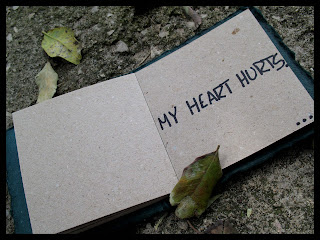 MY HEART HURTS.
...